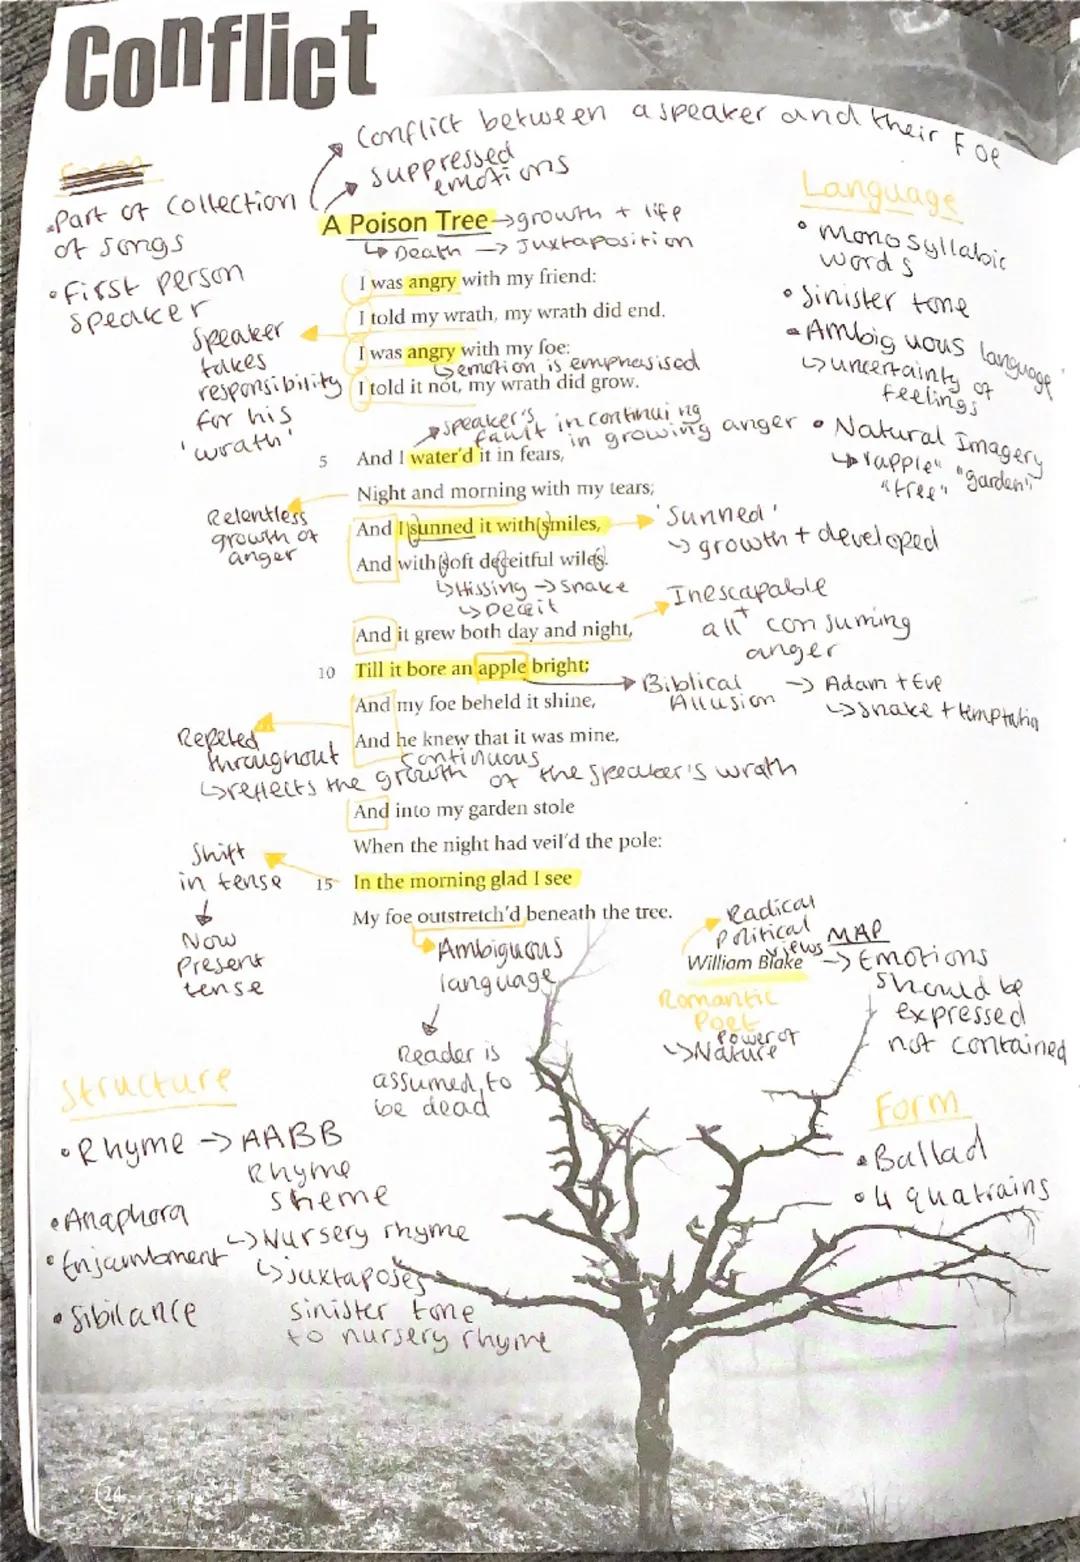 Conflict
Conflict between a speaker and their Foe
suppressed
emotions
•Part of Collection
of songs
•First person
speaker
A Poison Tree →growth + life
↳Death → Juxtaposition
Language
• Monosyllabic
words
• Sinister tone
• Ambiguous language
↳uncertainty of
feelings
• Natural Imagery
↳"apple" "garden"
"tree"
I was angry with my friend:
I told my wrath, my wrath did end.
I was angry with my foe:
↳emotion is emphasised
I told it not, my wrath did grow.
Speaker
takes
responsibility
for his
'wrath'
speaker's
fault in continuing
in growing anger
5 And I water'd it in fears,
Night and morning with my tears;
And I sunned it with smiles,
And with soft deceitful wiles.
Relentless
growth of
anger
'Sunned'
↳growth + developed
↳Hissing → Snake
↳Deceit
Inescapable
all+ consuming
anger
And it grew both day and night,
10 Till it bore an apple bright;
And my foe beheld it shine,
And he knew that it was mine,
Biblical → Adam + Eve
Allusion ↳snake + temptation
Repeted
throughout
continuous
↳reflects the growth of the speaker's wrath
And into my garden stole
When the night had veil'd the pole:
15 In the morning glad I see
My foe outstretch'd beneath the tree.
Shift
in tense
↓
Now
Present
tense
Ambiguous
language
↓
Reader is
assumed to
be dead
Radical
Political
views
William Blake
MAP
→Emotions
should be
expressed
not contained
Romantic
Poet
Power of
↳Nature
Structure
•Rhyme → AABB
Rhyme
sheme
↳Nursery rhyme
↳juxtaposes
sinister tone
to nursery rhyme
•Anaphora
•Enjambment
•Sibilance
Form
•Ballad
•4 quatrains
24